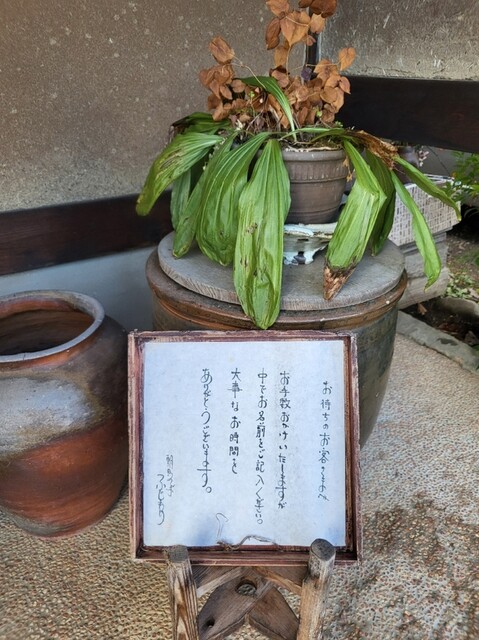 お待ちのお客さまへ
お手数おかけいたしますが
中でお名前をご記入ください
大事なお時間を
ありがとうございます。